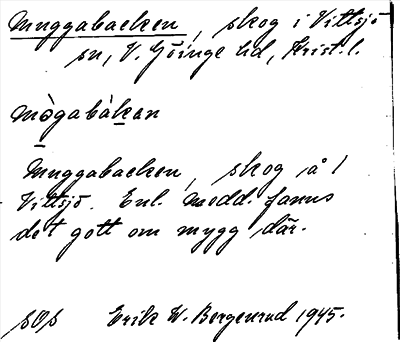 Muggabacken, skog i Vittsjö
sn, V. Göinge hd, Krist. l.
mògabàkan
Muggabacken, skog å 1
Vittsjö. Enl. medd. fanns
det gott om mygg där.
SOS Erik W. Bergenrud 1945.